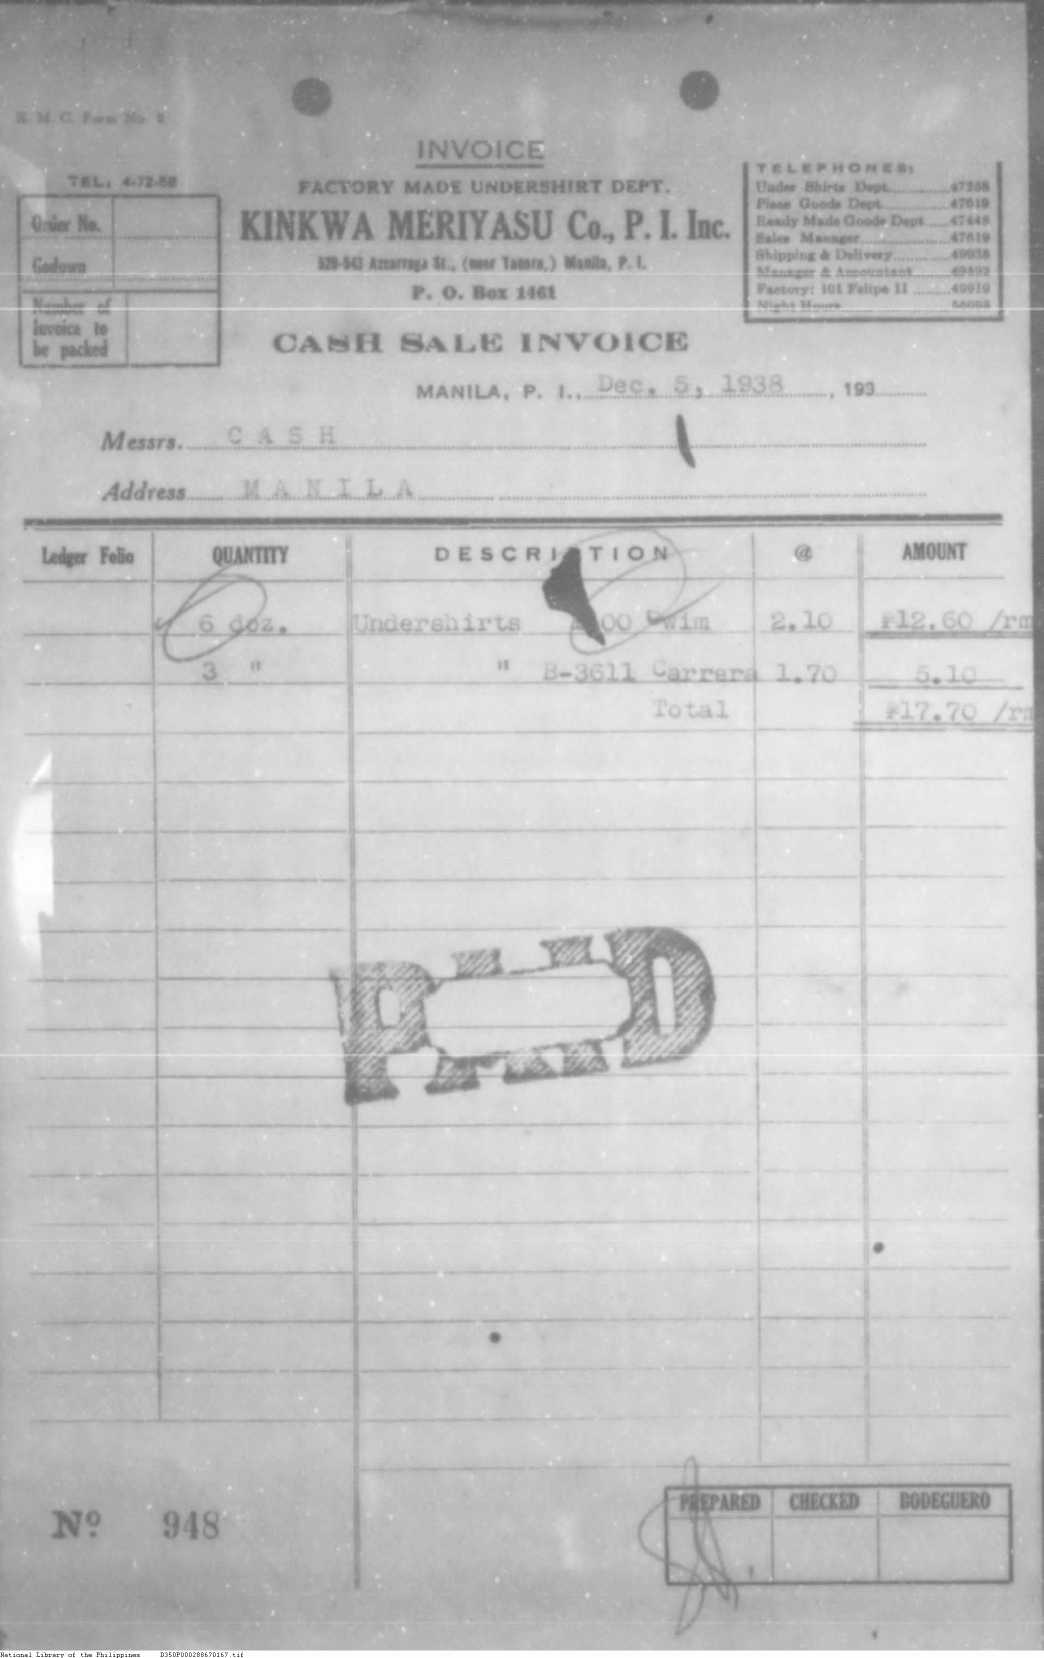 K. M. C. Form No. 2
INVOICE
TEL: 4-72-58
FACTORY MADE UNDERSHIRT DEPT.
KINKWA MERIYASU Co., P. I. Inc.
529-543 Azcarraga St., (near Tabora,) Manila, P. I.
P. O. Box 1461
Order No.
Godown
Number of
invoice to
be packed
TELEPHONES:
Under Shirts Dept. 47358
Piece Goods Dept. 47619
Ready Made Goods Dept. 47448
Sales Manager 47619
Shipping & Delivery 49938
Manager & Accountant
Factory: 101 Felipe II 49919
Night Hours
CASH SALE INVOICE
MANILA, P. I., Dec. 5, 1938, 193
Messrs. CASH
Address MANILA
Ledger Folio QUANTITY DESCRIPTION @ AMOUNT
6 doz. Undershirts 00 Swim 2.10 ₱12.60 /rm
3 " " B-3611 Carrera 1.70 5.10
Total ₱17.70 /rm
PAID
Nº 948
PREPARED CHECKED BODEGUERO
National Library of the Philippines D350P000288670167.tif